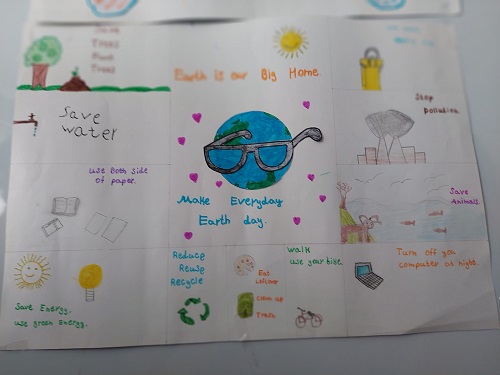 Save
Trees
Plant
Trees
Earth is our Big Home.
Stop
Pollution.
Save
water
use Both side
of paper.
Make Everyday
Earth day.
Save
Animals.
Save Energy.
use green Energy.
Reduce
Reuse
Recycle
Eat
Clean up
Trash
Walk
use your bike.
Turn off you
computer at night.